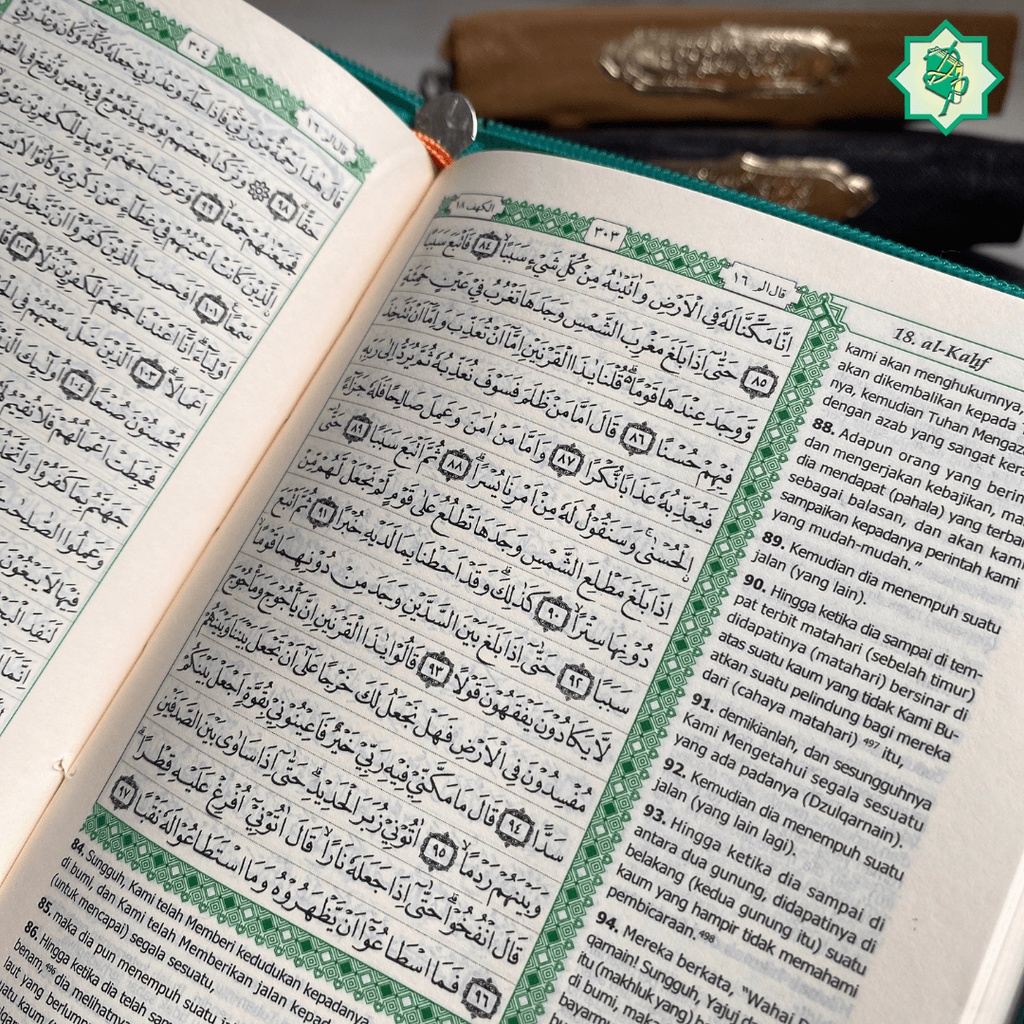 الكهف ١٨
٣٠٣
قال الم ١٦
اِنَّا مَكَّنَّا لَهٗ فِى الْاَرْضِ وَاٰتَيْنٰهُ مِنْ كُلِّ شَيْءٍ سَبَبًا ۙ ٨٤ فَاَتْبَعَ سَبَبًا
٨٥ حَتّٰىٓ اِذَا بَلَغَ مَغْرِبَ الشَّمْسِ وَجَدَهَا تَغْرُبُ فِيْ عَيْنٍ حَمِئَةٍ
وَّوَجَدَ عِنْدَهَا قَوْمًا ەۗ قُلْنَا يٰذَا الْقَرْنَيْنِ اِمَّآ اَنْ تُعَذِّبَ وَاِمَّآ اَنْ تَتَّخِذَ
فِيْهِمْ حُسْنًا ٨٦ قَالَ اَمَّا مَنْ ظَلَمَ فَسَوْفَ نُعَذِّبُهٗ ثُمَّ يُرَدُّ اِلٰى رَبِّهٖ
فَيُعَذِّبُهٗ عَذَابًا نُّكْرًا ٨٧ وَاَمَّا مَنْ اٰمَنَ وَعَمِلَ صَالِحًا فَلَهٗ جَزَاۤءً
ۨالْحُسْنٰىۚ وَسَنَقُوْلُ لَهٗ مِنْ اَمْرِنَا يُسْرًا ۗ ٨٨ ثُمَّ اَتْبَعَ سَبَبًا ٨٩ حَتّٰىٓ
اِذَا بَلَغَ مَطْلِعَ الشَّمْسِ وَجَدَهَا تَطْلُعُ عَلٰى قَوْمٍ لَّمْ نَجْعَلْ لَّهُمْ مِّنْ
دُوْنِهَا سِتْرًا ۙ ٩٠ كَذٰلِكَۗ وَقَدْ اَحَطْنَا بِمَا لَدَيْهِ خُبْرًا ٩١ ثُمَّ اَتْبَعَ
سَبَبًا ٩٢ حَتّٰىٓ اِذَا بَلَغَ بَيْنَ السَّدَّيْنِ وَجَدَ مِنْ دُوْنِهِمَا قَوْمًاۙ
لَّا يَكَادُوْنَ يَفْقَهُوْنَ قَوْلًا ٩٣ قَالُوْا يٰذَا الْقَرْنَيْنِ اِنَّ يَأْجُوْجَ وَمَأْجُوْجَ
مُفْسِدُوْنَ فِى الْاَرْضِ فَهَلْ نَجْعَلُ لَكَ خَرْجًا عَلٰٓى اَنْ تَجْعَلَ بَيْنَنَا وَبَيْنَهُمْ
سَدًّا ٩٤ قَالَ مَا مَكَّنِّيْ فِيْهِ رَبِّيْ خَيْرٌ فَاَعِيْنُوْنِيْ بِقُوَّةٍ اَجْعَلْ بَيْنَكُمْ
وَبَيْنَهُمْ رَدْمًا ۙ ٩٥ اٰتُوْنِيْ زُبَرَ الْحَدِيْدِۗ حَتّٰىٓ اِذَا سَاوٰى بَيْنَ الصَّدَفَيْنِ
قَالَ انْفُخُوْاۗ حَتّٰىٓ اِذَا جَعَلَهٗ نَارًاۙ قَالَ اٰتُوْنِيْٓ اُفْرِغْ عَلَيْهِ قِطْرًا ۗ
٩٦ فَمَا اسْطَاعُوْٓا اَنْ يَّظْهَرُوْهُ وَمَا اسْتَطَاعُوْا لَهٗ نَقْبًا ٩٧
84. Sungguh, Kami telah Memberi kedudukan kepadanya
di bumi, dan Kami telah Memberikan jalan kepada
(untuk mencapai) segala sesuatu,
85. maka dia pun menempuh suatu
86. Hingga ketika dia telah
benam, 496 dia melihatnya
laut yang berlumpur
suatu kaum
18. al-Kahf
kami akan menghukumnya,
akan dikembalikan kepada
nya, kemudian Tuhan
dengan azab yang sangat
88. Adapun orang yang
dan mengerjakan kebajikan,
dia mendapat (pahala) yang
sebagai balasan, dan akan kami
sampaikan kepadanya perintah kami
yang mudah-mudah."
89. Kemudian dia menempuh suatu
jalan (yang lain).
90. Hingga ketika dia sampai di tem-
pat terbit matahari (sebelah timur)
didapatinya (matahari) bersinar di
atas suatu kaum yang tidak Kami Bu-
atkan suatu pelindung bagi mereka
dari (cahaya matahari) 497 itu,
91. demikianlah, dan sesungguhnya
Kami Mengetahui segala sesuatu
yang ada padanya (Dzulqarnain).
92. Kemudian dia menempuh suatu
jalan (yang lain lagi).
93. Hingga ketika dia sampai di
antara dua gunung, didapatinya di
belakang (kedua gunung itu) suatu
kaum yang hampir tidak memahami
pembicaraan. 498
94. Mereka berkata, "Wahai
qarnain! Sungguh, Yajuj
itu (makhluk yang)
di bumi, maka
٣٠٤
قال الم ١٦
قَالَ هٰذَا رَحْمَةٌ مِّنْ رَّبِّيْۚ فَاِذَا جَاۤءَ وَعْدُ رَبِّيْ جَعَلَهٗ دَكَّاۤءَۚ وَكَانَ وَعْدُ رَبِّيْ
حَقًّا ۗ ٩٨ وَتَرَكْنَا بَعْضَهُمْ يَوْمَىِٕذٍ يَّمُوْجُ فِيْ بَعْضٍ وَّنُفِخَ فِى
فَجَمَعْنٰهُمْ جَمْعًا ۙ ٩٩ وَّعَرَضْنَا جَهَنَّمَ يَوْمَىِٕذٍ لِّلْكٰفِرِيْنَ
الَّذِيْنَ كَانَتْ اَعْيُنُهُمْ فِيْ غِطَاۤءٍ عَنْ ذِكْرِيْ وَكَانُوْا
سَمْعًا ١٠١ اَفَحَسِبَ الَّذِيْنَ كَفَرُوْٓا اَنْ يَّتَّخِذُوْا
اَوْلِيَاۤءَ ۗاِنَّآ اَعْتَدْنَا جَهَنَّمَ لِلْكٰفِرِيْنَ نُزُلًا ١٠٢
اَعْمَالًا ۗ ١٠٣ اَلَّذِيْنَ ضَلَّ سَعْيُهُمْ فِى
يُحْسِنُوْنَ صُنْعًا ١٠٤ اُولٰۤىِٕكَ
فَحَبِطَتْ اَعْمَالُهُمْ فَلَا نُقِيْمُ
جَهَنَّمُ بِمَا كَفَرُوْا
وَعَمِلُوا الصّٰلِحٰتِ
فِيْهَا لَا يَبْغُوْنَ
لَنَفِدَ
اِنَّمَآ